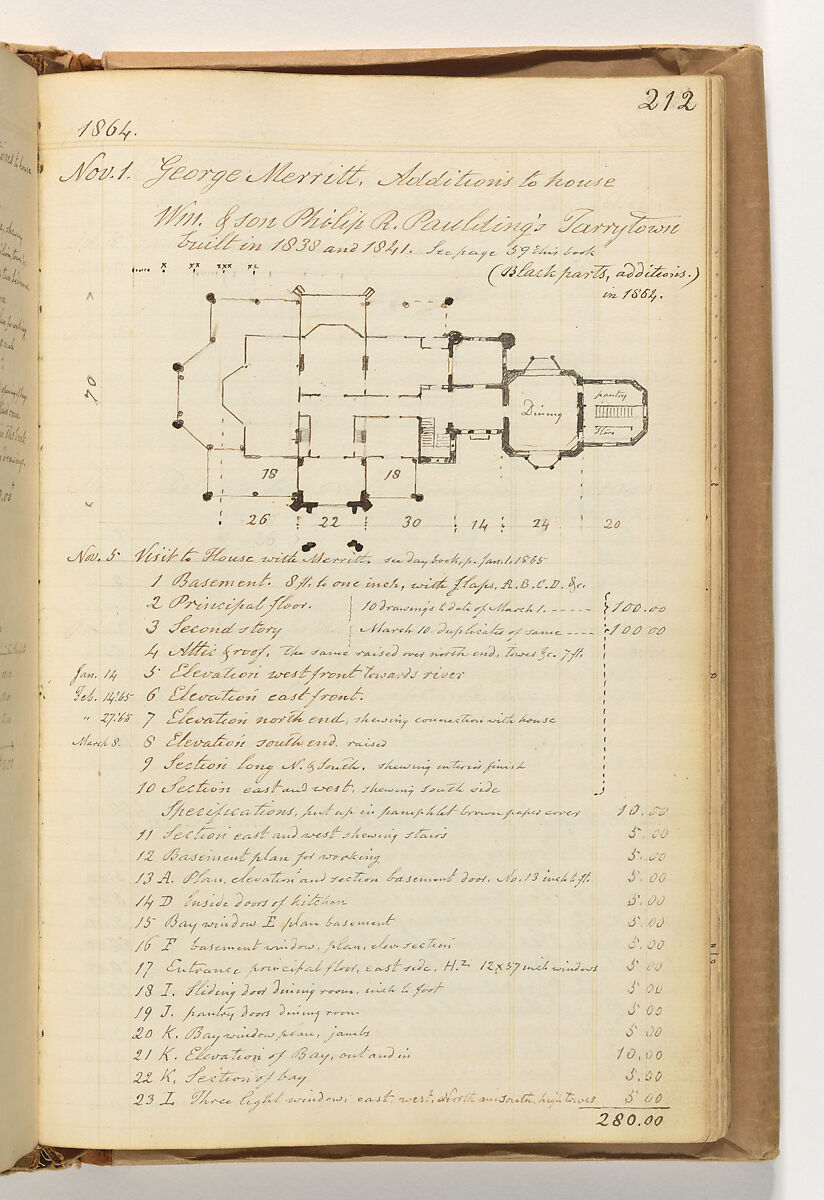 212
1864.
Nov. 1. George Merritt. Additions to house
Wm. & son Philip R. Paulding's Tarrytown
built in 1838 and 1841. See page 59 this book
(Black parts, additions.)
in 1864.
70
Dining
pantry
Store
18 18
26 22 30 14 24 20
Nov. 5 Visit to House with Merritt. see day book, p. Jan. 1. 1865
1 Basement. 8 ft. to one inch, with flaps, A. B. C. D. &c.
2 Principal floor. 10 drawings to date of March 1. 100.00
3 Second story March 10. duplicates of same 100 00
4 Attic & roof. The same raised over north end, tower &c. 7 ft.
Jan. 14 5 Elevation west front towards river
Feb. 14. '65 6 Elevation east front.
" 27. '65 7 Elevation north end, shewing connection with house
March 8. 8 Elevation south end. raised
9 Section long N. & South. shewing interior finish
10 Section east and west, shewing south side
Specifications, put up in pamphlet brown paper cover 10.00
11 Section east and west shewing stairs 5.00
12 Basement plan for working 5.00
13 A. Plan, elevation and section basement door. No. 13 inch to ft. 5.00
14 D Inside doors of kitchen 5.00
15 Bay window E plan basement 5.00
16 F basement window, plan, elev. section 5.00
17 Entrance principal floor, east side, H. 12 x 57 inch windows 5 00
18 I. Sliding door dining room, inch to foot 5 00
19 J. pantry doors dining room 5 00
20 K. Bay window jambs 5 00
21 K. Elevation of Bay, out and in 10.00
22 K. Section of bay 5.00
23 L Three light window, east, west, North and south, high tower 5 00
280.00